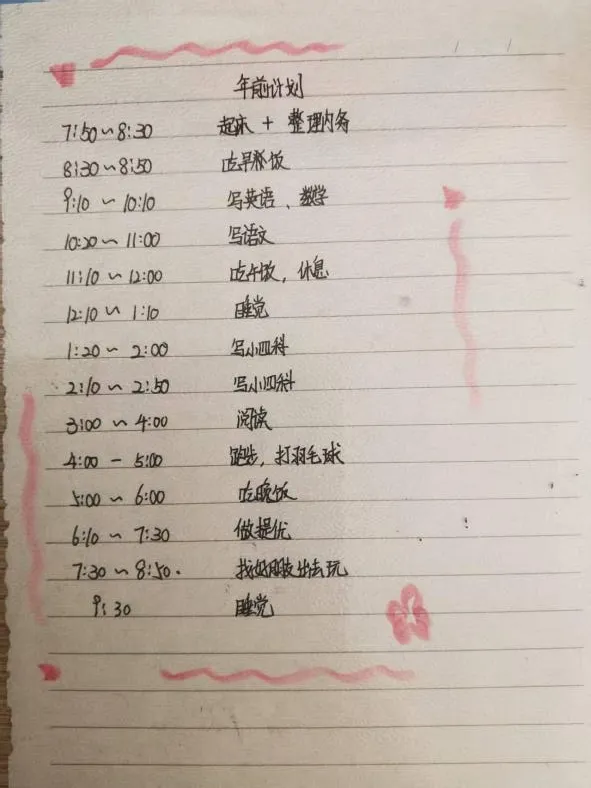 年前计划
7:50~8:30 起床 + 整理内务
8:30~8:50 吃早餐饭
9:10~10:10 写英语、数学
10:20~11:00 写语文
11:10~12:00 吃午饭,休息
12:10~1:10 睡觉
1:20~2:00 写小四科
2:10~2:50 写小四科
3:00~4:00 阅读
4:00-5:00 跑步,打羽毛球
5:00~6:00 吃晚饭
6:10~7:30 做提优
7:30~8:50. 找好朋友出去玩
9:30 睡觉